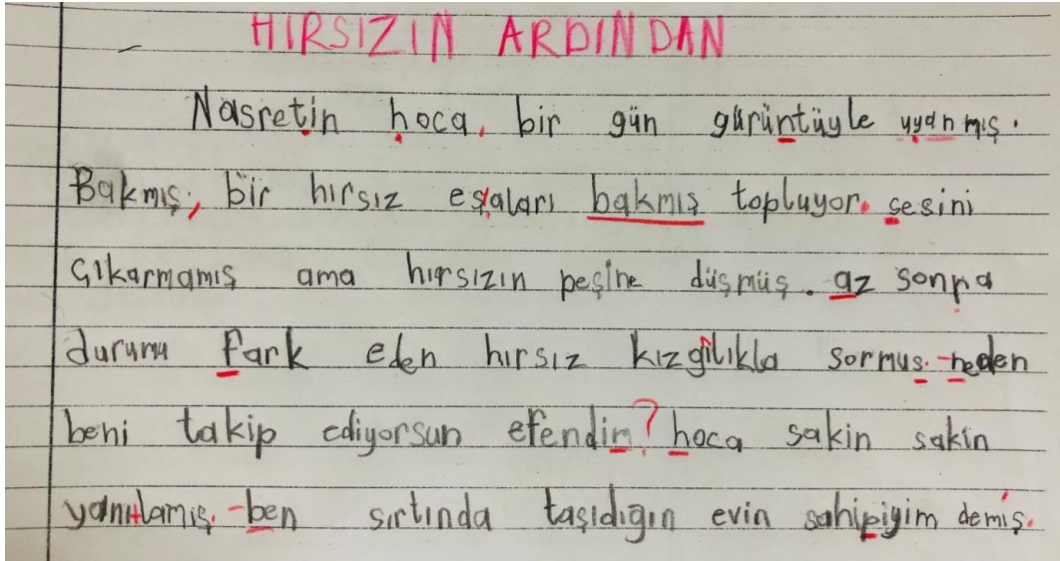 HIRSIZIN ARDINDAN
Nasretin hoca, bir gün gürüntüyle uyanmış.
Bakmış, bir hırsız eşyaları bakmış topluyor. sesini
çıkarmamış ama hırsızın peşine düşmüş. az sonra
durumu fark eden hırsız kızgılıkla sormus. -neden
beni takip ediyorsun efendin? hoca sakin sakin
yanıtlamış. -ben sırtında taşıdığın evin sahipiyim demiş.